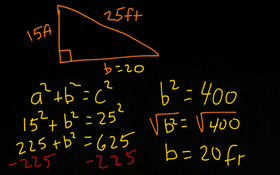 15ft
25ft
b=20
a²+b²=c²
15²+b²=25²
225+b²=625
-225 -225
b²=400
√b²=√400
b=20ft